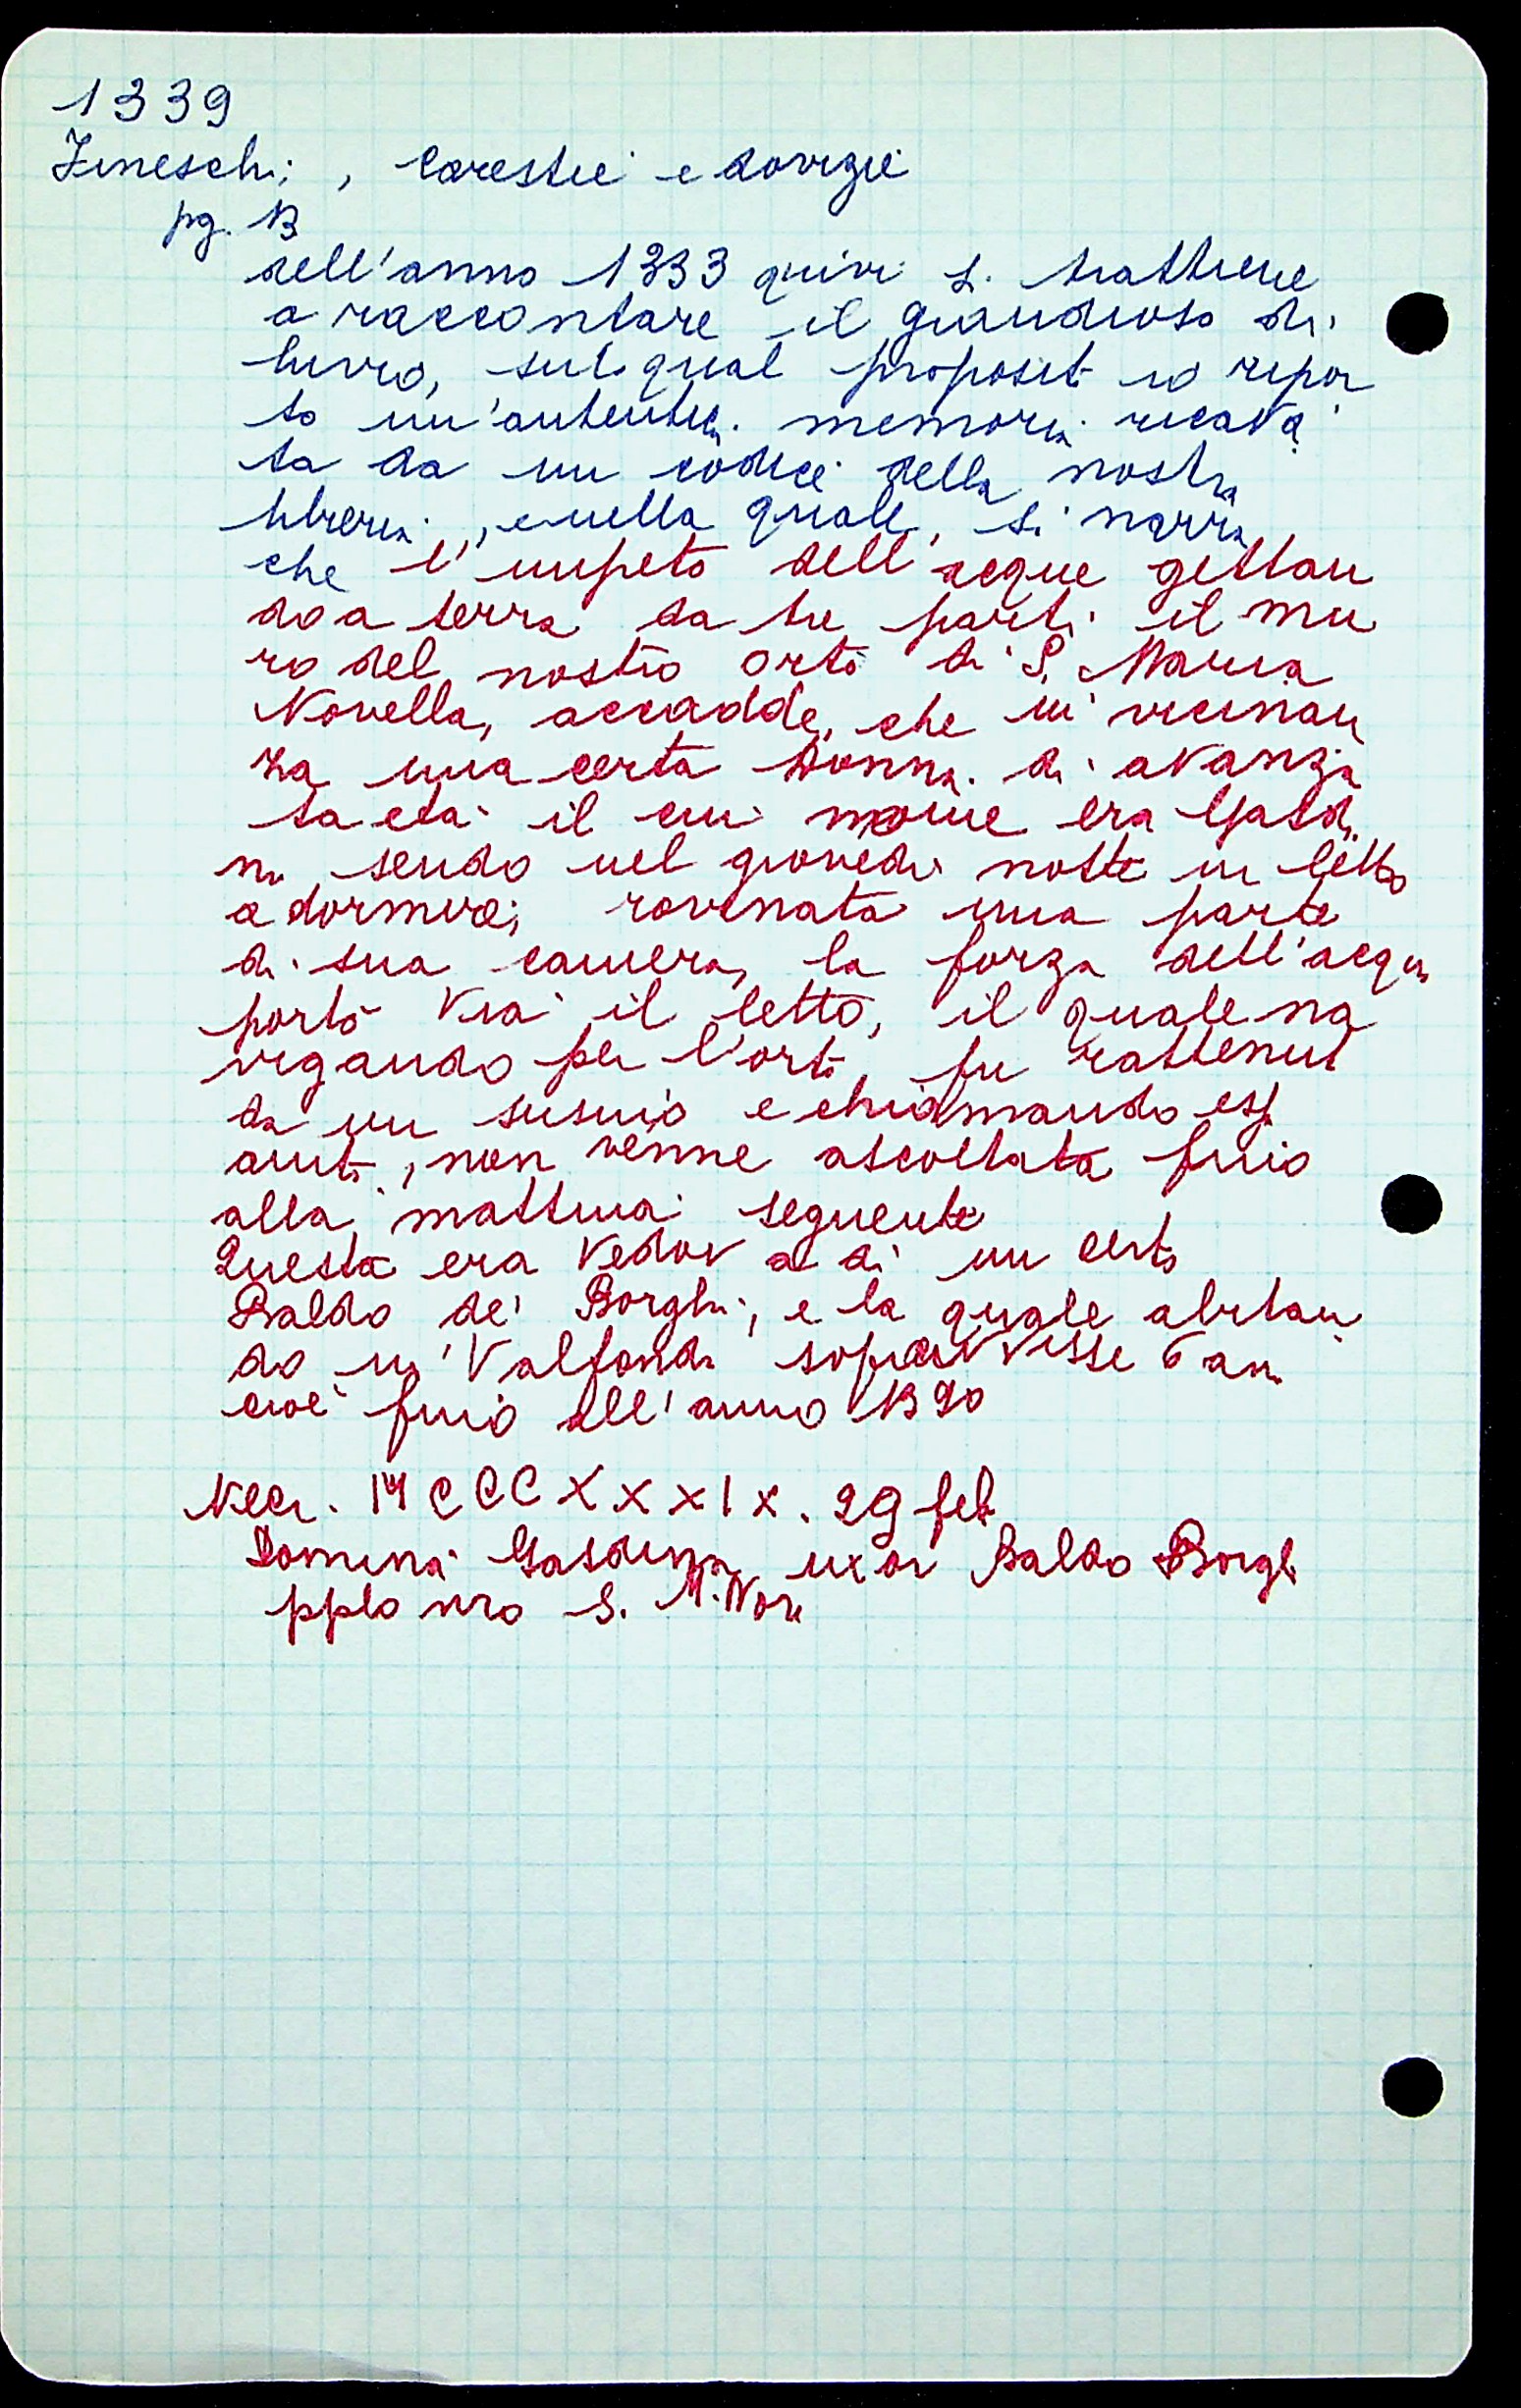 1339
Fineschi, Carestie e dovizie
pg. 13
dell'anno 1333 quivi si trattiene
a raccontare il grandioso di
luvio, sul qual proposit io ripor
to un'autentica memoria ricava
ta da un codice della nostra
libreria, e nella quale, si narra
che l'impeto dell'acque gettan
do a terra da tre parti il mu
ro del nostro orto di S. Maria
Novella, accadde, che in vicinan
za una certa Donna di avanza
ta età il cui nome era Gasdi
na sendo nel giovedì notte in letto
a dormire; rovinata una parte
di sua camera, la forza dell'acqua
portò via il letto, il quale na
vigando per l'orto, fu rattenut
da un susino e chiamando essa
aiuto, non venne ascoltata fino
alla mattina seguente
Questa era Vedova di un certo
Baldo de' Borghi, e la quale abitan
do in Valfonda sopravvisse 6 an
cioè fino all'anno 1390
Necr. MCCCXXXIX. 29 feb
Domina Gasdina uxor Baldo Borghi
pplo nro S. M. Nov